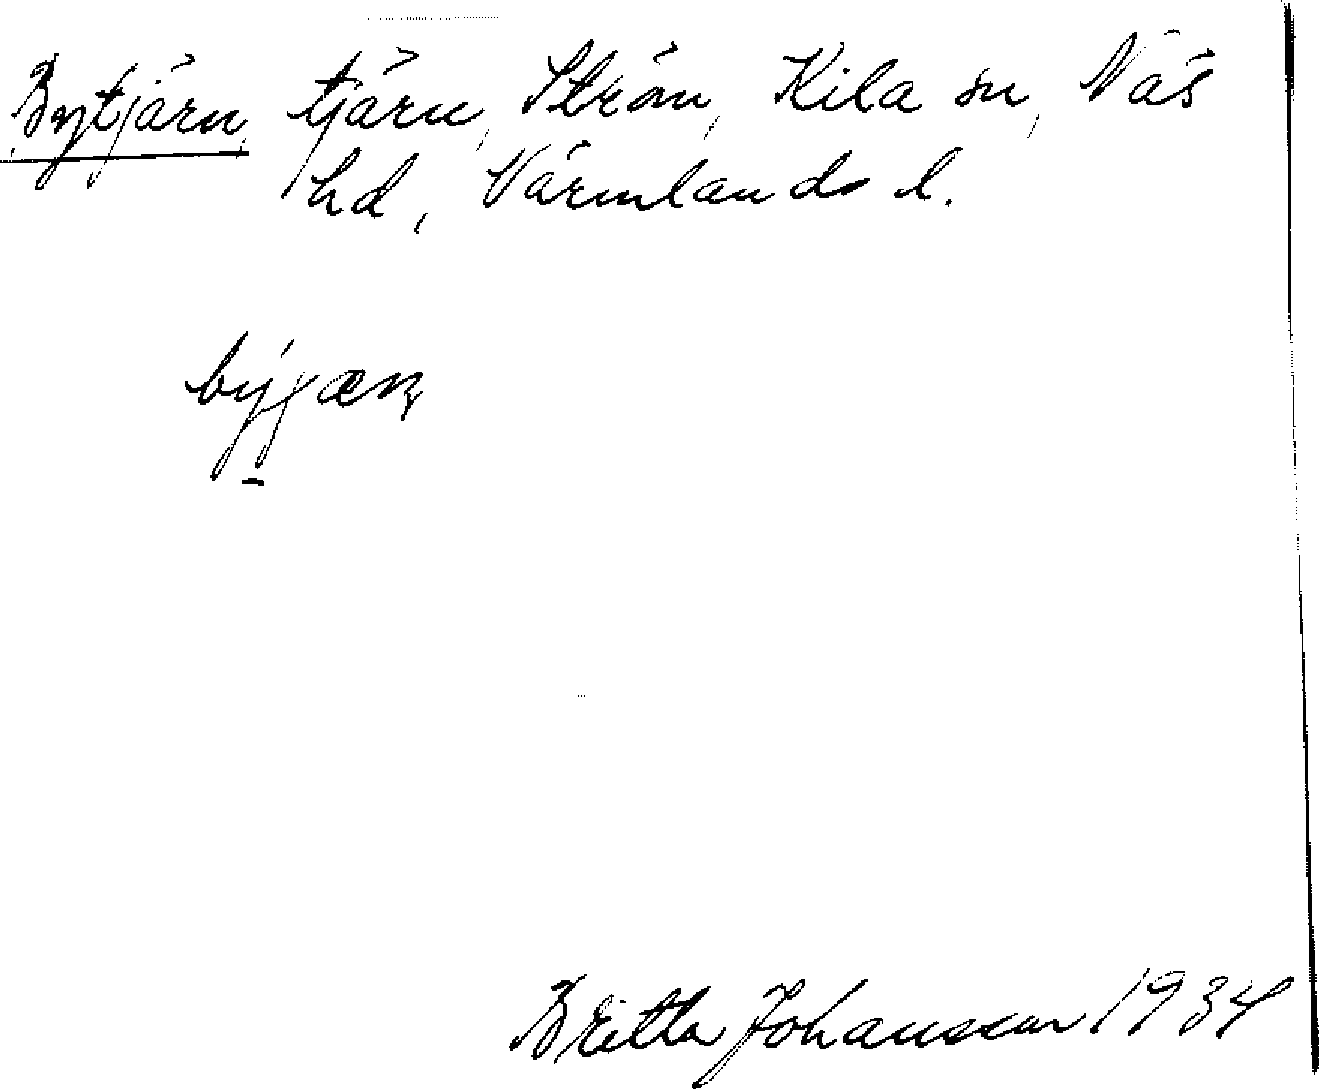 Bytjärn, tjärn, Ström, Kila sn, Näs
hd, Värmlands l.
Britta Johansson 1934